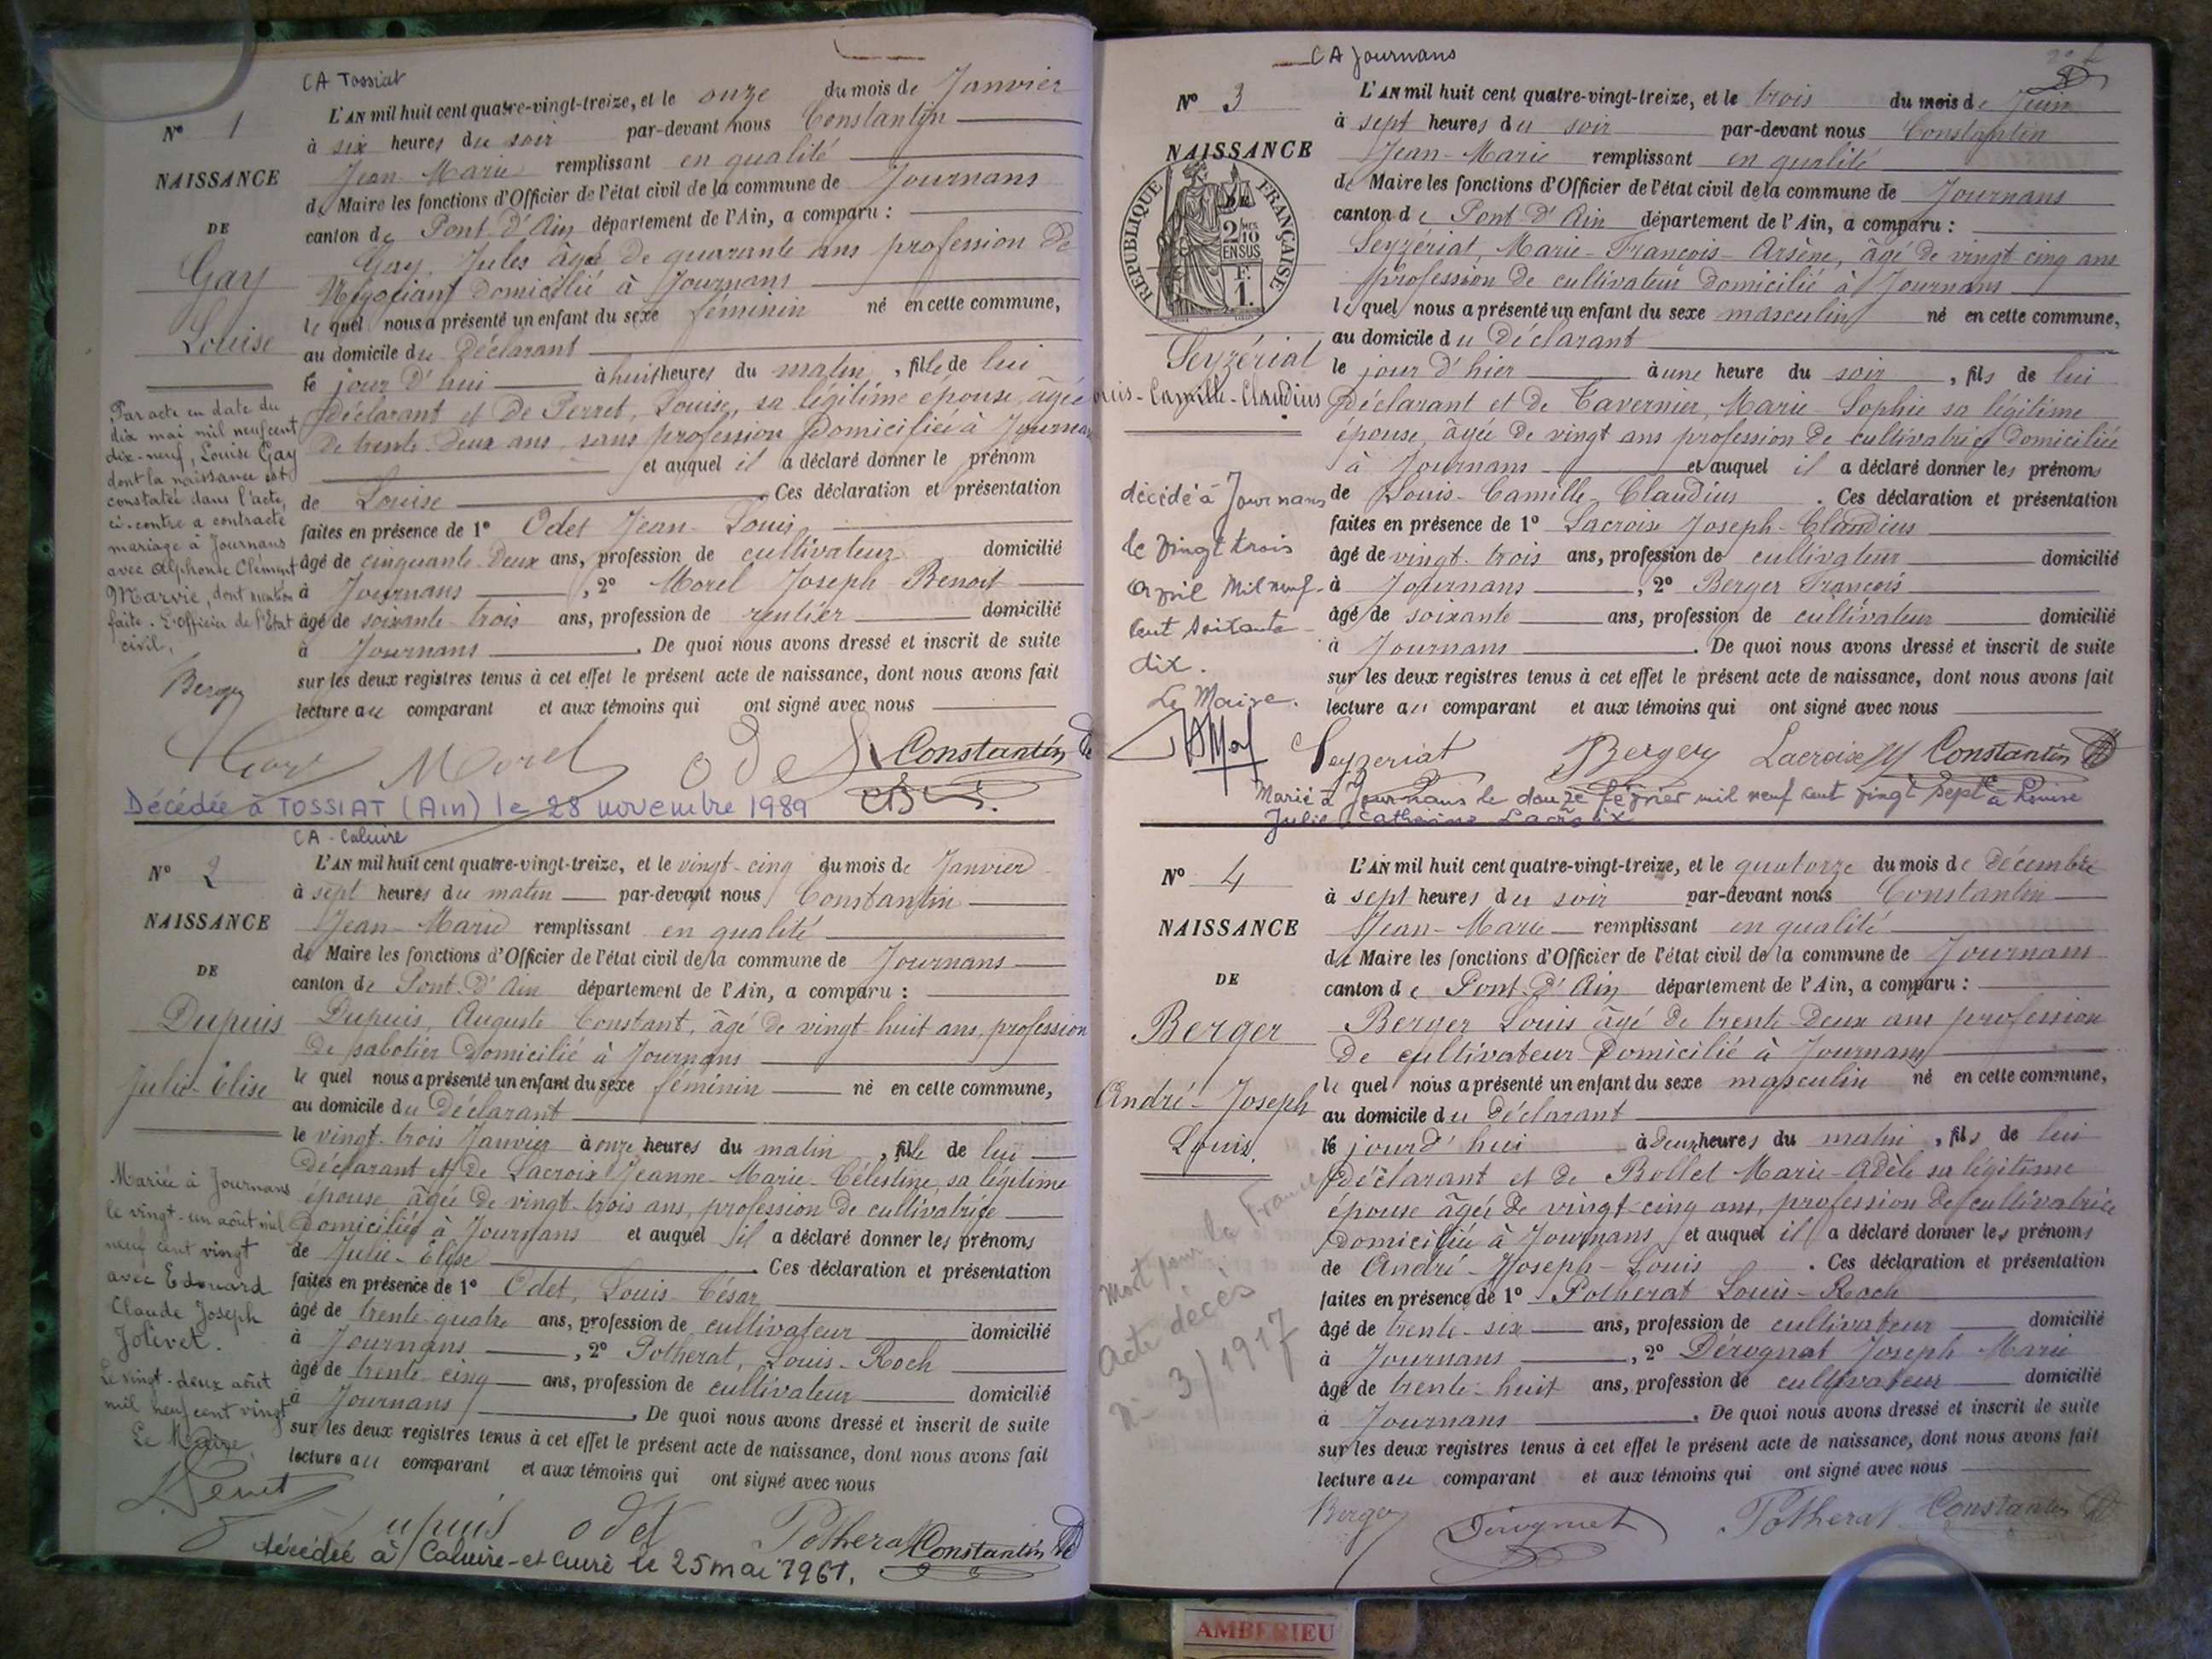 CA Tossiat
N° 1
NAISSANCE
DE
Gay
Louise
L'AN mil huit cent quatre-vingt-treize, et le onze du mois de Janvier
à six heures du soir par-devant nous Constantin
Jean-Marie remplissant en qualité
de Maire les fonctions d'Officier de l'état civil de la commune de Journans
canton de Pont d'Ain département de l'Ain, a comparu :
Gay, Jules âgé de quarante ans profession de
Négociant domicilié à Journans
le quel nous a présenté un enfant du sexe féminin né en cette commune,
au domicile du déclarant
le jour d'hui à huit heures du matin, fille de lui
déclarant et de Perret, Louise, sa légitime épouse, âgée
de trente-deux ans, sans profession domiciliée à Journans
et auquel il a déclaré donner le prénom
de Louise. Ces déclaration et présentation
faites en présence de 1° Odet Jean-Louis
âgé de cinquante-deux ans, profession de cultivateur domicilié
à Journans, 2° Morel Joseph Benoit
âgé de soixante-trois ans, profession de rentier domicilié
à Journans. De quoi nous avons dressé et inscrit de suite
sur les deux registres tenus à cet effet le présent acte de naissance, dont nous avons fait
lecture au comparant et aux témoins qui ont signé avec nous
Par acte en date du
dix mai mil neuf cent
dix-neuf, Louise Gay
dont la naissance est
constatée dans l'acte
ci-contre a contracté
mariage à Journans
avec Alphonse Clément
Marvie, dont mention
faite. L'Officier de l'Etat
civil,
Berger
Gay Morel Odet Constantin
Décédée à TOSSIAT (Ain) le 28 novembre 1989
CA - Caluire
N° 2
NAISSANCE
DE
Dupuis
Julie-Elise
L'AN mil huit cent quatre-vingt-treize, et le vingt-cinq du mois de Janvier
à sept heures du matin par-devant nous Constantin
Jean-Marie remplissant en qualité
de Maire les fonctions d'Officier de l'état civil de la commune de Journans
canton de Pont-d'Ain département de l'Ain, a comparu :
Dupuis, Auguste Constant, âgé de vingt huit ans, profession
de sabotier domicilié à Journans
le quel nous a présenté un enfant du sexe féminin né en cette commune,
au domicile du déclarant
le vingt-trois Janvier à onze heures du matin, fille de lui
déclarant et de Lacroix Jeanne-Marie-Célestine, sa légitime
épouse âgée de vingt-trois ans, profession de cultivatrice
domiciliée à Journans et auquel il a déclaré donner les prénoms
de Julie-Elise. Ces déclaration et présentation
faites en présence de 1° Odet, Louis-César,
âgé de trente-quatre ans, profession de cultivateur domicilié
à Journans, 2° Potherat, Louis-Roch
âgé de trente-cinq ans, profession de cultivateur domicilié
à Journans. De quoi nous avons dressé et inscrit de suite
sur les deux registres tenus à cet effet le présent acte de naissance, dont nous avons fait
lecture au comparant et aux témoins qui ont signé avec nous
Mariée à Journans
le vingt-un août mil
neuf cent vingt
avec Edouard
Claude Joseph
Jolivet.
Le vingt-deux août
mil neuf cent vingt
Le Maire,
Dupuis Odet Potherat Constantin
décédée à Caluire-et-Cuire le 25 mai 1961.
CA Journans
N° 3
NAISSANCE
REPUBLIQUE FRANÇAISE
2/10 EN SUS
F. 1.
Seyzériat
Louis-Camille-Claudius
L'AN mil huit cent quatre-vingt-treize, et le trois du mois de Juin
à sept heures du soir par-devant nous Constantin
Jean-Marie remplissant en qualité
de Maire les fonctions d'Officier de l'état civil de la commune de Journans
canton de Pont d'Ain département de l'Ain, a comparu :
Seyzériat, Marie-François-Arsène, âgé de vingt cinq ans
profession de cultivateur domicilié à Journans
le quel nous a présenté un enfant du sexe masculin né en cette commune,
au domicile du déclarant
le jour d'hier à une heure du soir, fils de lui
déclarant et de Tavernier, Marie-Sophie sa légitime
épouse, âgée de vingt ans profession de cultivatrice domiciliée
à Journans et auquel il a déclaré donner les prénoms
de Louis-Camille-Claudius. Ces déclaration et présentation
faites en présence de 1° Lacroix Joseph-Claudius
âgé de vingt-trois ans, profession de cultivateur domicilié
à Journans, 2° Berger François
âgé de soixante ans, profession de cultivateur domicilié
à Journans. De quoi nous avons dressé et inscrit de suite
sur les deux registres tenus à cet effet le présent acte de naissance, dont nous avons fait
lecture au comparant et aux témoins qui ont signé avec nous
décédé à Journans
le vingt trois
avril mil neuf
cent soixante
dix.
Le Maire.
Seyzeriat Berger Lacroix Constantin
Marié à Journans le douze février mil neuf cent vingt sept à Louise
Julie Catherine Lacroix
N° 4
NAISSANCE
DE
Berger
André-Joseph
Louis
L'AN mil huit cent quatre-vingt-treize, et le quatorze du mois de décembre
à sept heures du soir par-devant nous Constantin
Jean-Marie remplissant en qualité
de Maire les fonctions d'Officier de l'état civil de la commune de Journans
canton de Pont-d'Ain département de l'Ain, a comparu :
Berger Louis âgé de trente-deux ans profession
de cultivateur domicilié à Journans
le quel nous a présenté un enfant du sexe masculin né en cette commune,
au domicile du déclarant
le jourd'hui à deux heures du matin, fils de lui
déclarant et de Bollet Marie-Adèle sa légitime
épouse âgée de vingt-cinq ans, profession de cultivatrice
domiciliée à Journans et auquel il a déclaré donner les prénoms
de André-Joseph-Louis. Ces déclaration et présentation
faites en présence de 1° Potherat Louis-Roch
âgé de trente-six ans, profession de cultivateur domicilié
à Journans, 2° Dérognat Joseph Marie
âgé de trente-huit ans, profession de cultivateur domicilié
à Journans. De quoi nous avons dressé et inscrit de suite
sur les deux registres tenus à cet effet le présent acte de naissance, dont nous avons fait
lecture au comparant et aux témoins qui ont signé avec nous
Mort pour la France
Acte décès
n° 3/1917
Berger Dérognat Potherat Constantin
AMBERIEU